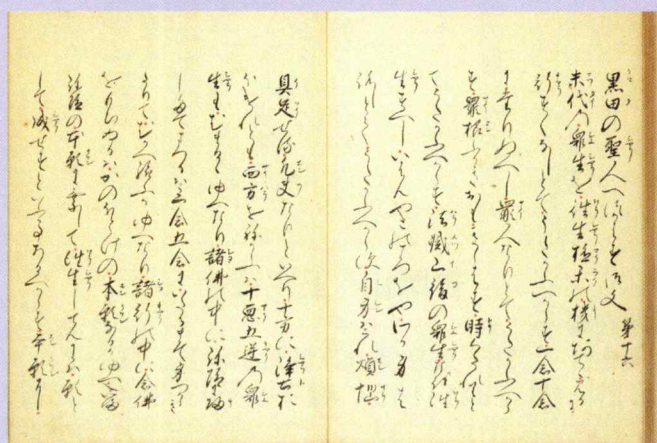 黒田の聖人へつかはす御文 第十六
末代の衆生を往生極楽の機にあてゝみるに
行すくなしとてうたかふへからす一念十念
にたりぬへし罪人なりとてうたかふへから
す罪根ふかきをもきらはす時くたれりと
てうたかふへからす法滅以後の衆生なを往
生すへしいはんやこのころをやわか身わ
ろしとてうたかふへからす自身はこれ煩悩
具足せる凡夫なりといへり十方に浄土お
ほけれとも西方をねかふは十悪五逆の衆
生もむまるゝゆへなり諸佛の中に弥陀に帰
したてまつるは三念五念にいたるまてみつから
きたりてむかへ給ふかゆへなり諸行の中に念佛
をもちゐるはかのほとけの本願なるかゆへ也いま
弥陀の本願に乗して往生しなんには願と
して成せすといふ事あるへからす本願に